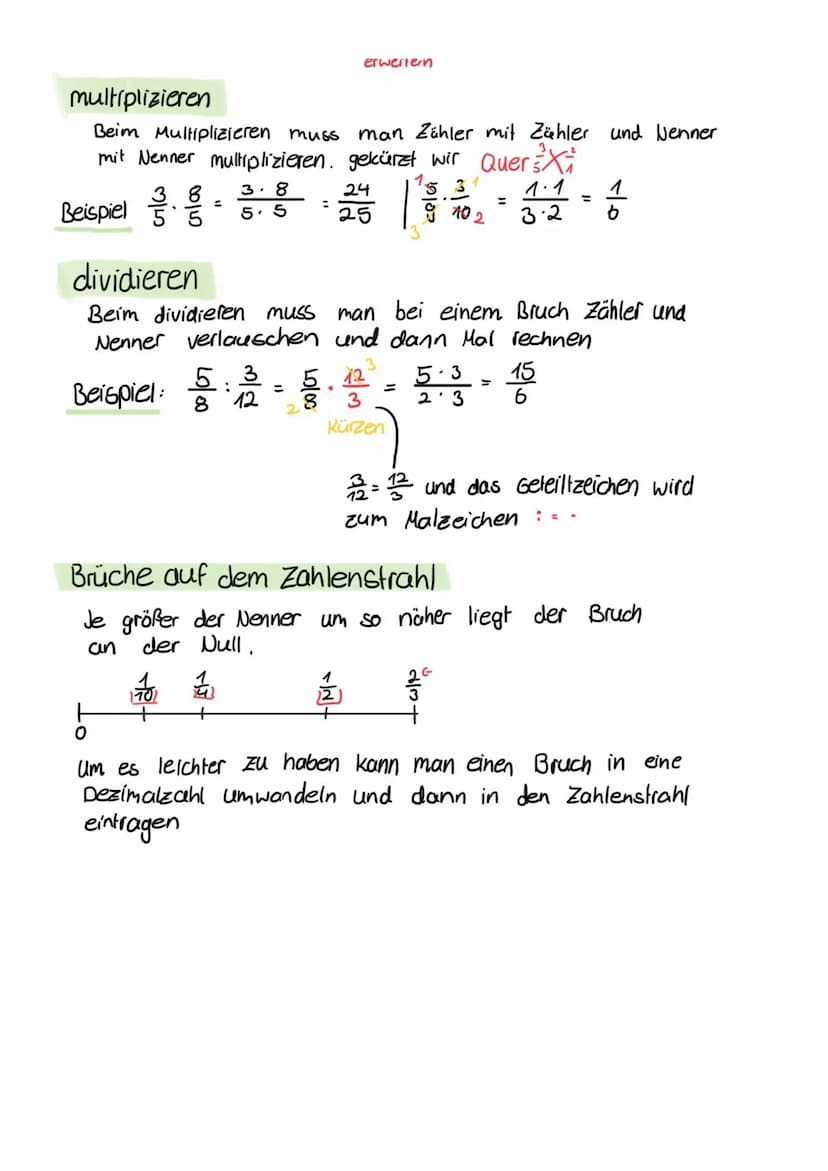 erweitern
multiplizieren
Beim Multiplizieren muss man Zähler mit Zähler und Nenner
mit Nenner multiplizieren. gekürzt wir Quer 3/5 X 2/1
Beispiel 3/5 · 8/5 = 3 · 8 / 5 · 5 = 24/25 | 1 5/9 3 · 3 1/10 2 = 1 · 1 / 3 · 2 = 1/6
dividieren
Beim dividieren muss man bei einem Bruch Zähler und
Nenner vertauschen und dann Mal rechnen
Beispiel: 5/8 : 3/12 = 5/8 2 · 12 3/3 = 5 · 3 / 2 · 3 = 15/6
Kürzen
3/12 = 12/3 und das Geteiltzeichen wird
zum Malzeichen : = ·
Brüche auf dem Zahlenstrahl
Je größer der Nenner um so näher liegt der Bruch
an der Null.
1/10 1/4 1/2 2/3
0
Um es leichter zu haben kann man einen Bruch in eine
Dezimalzahl umwandeln und dann in den Zahlenstrahl
eintragen